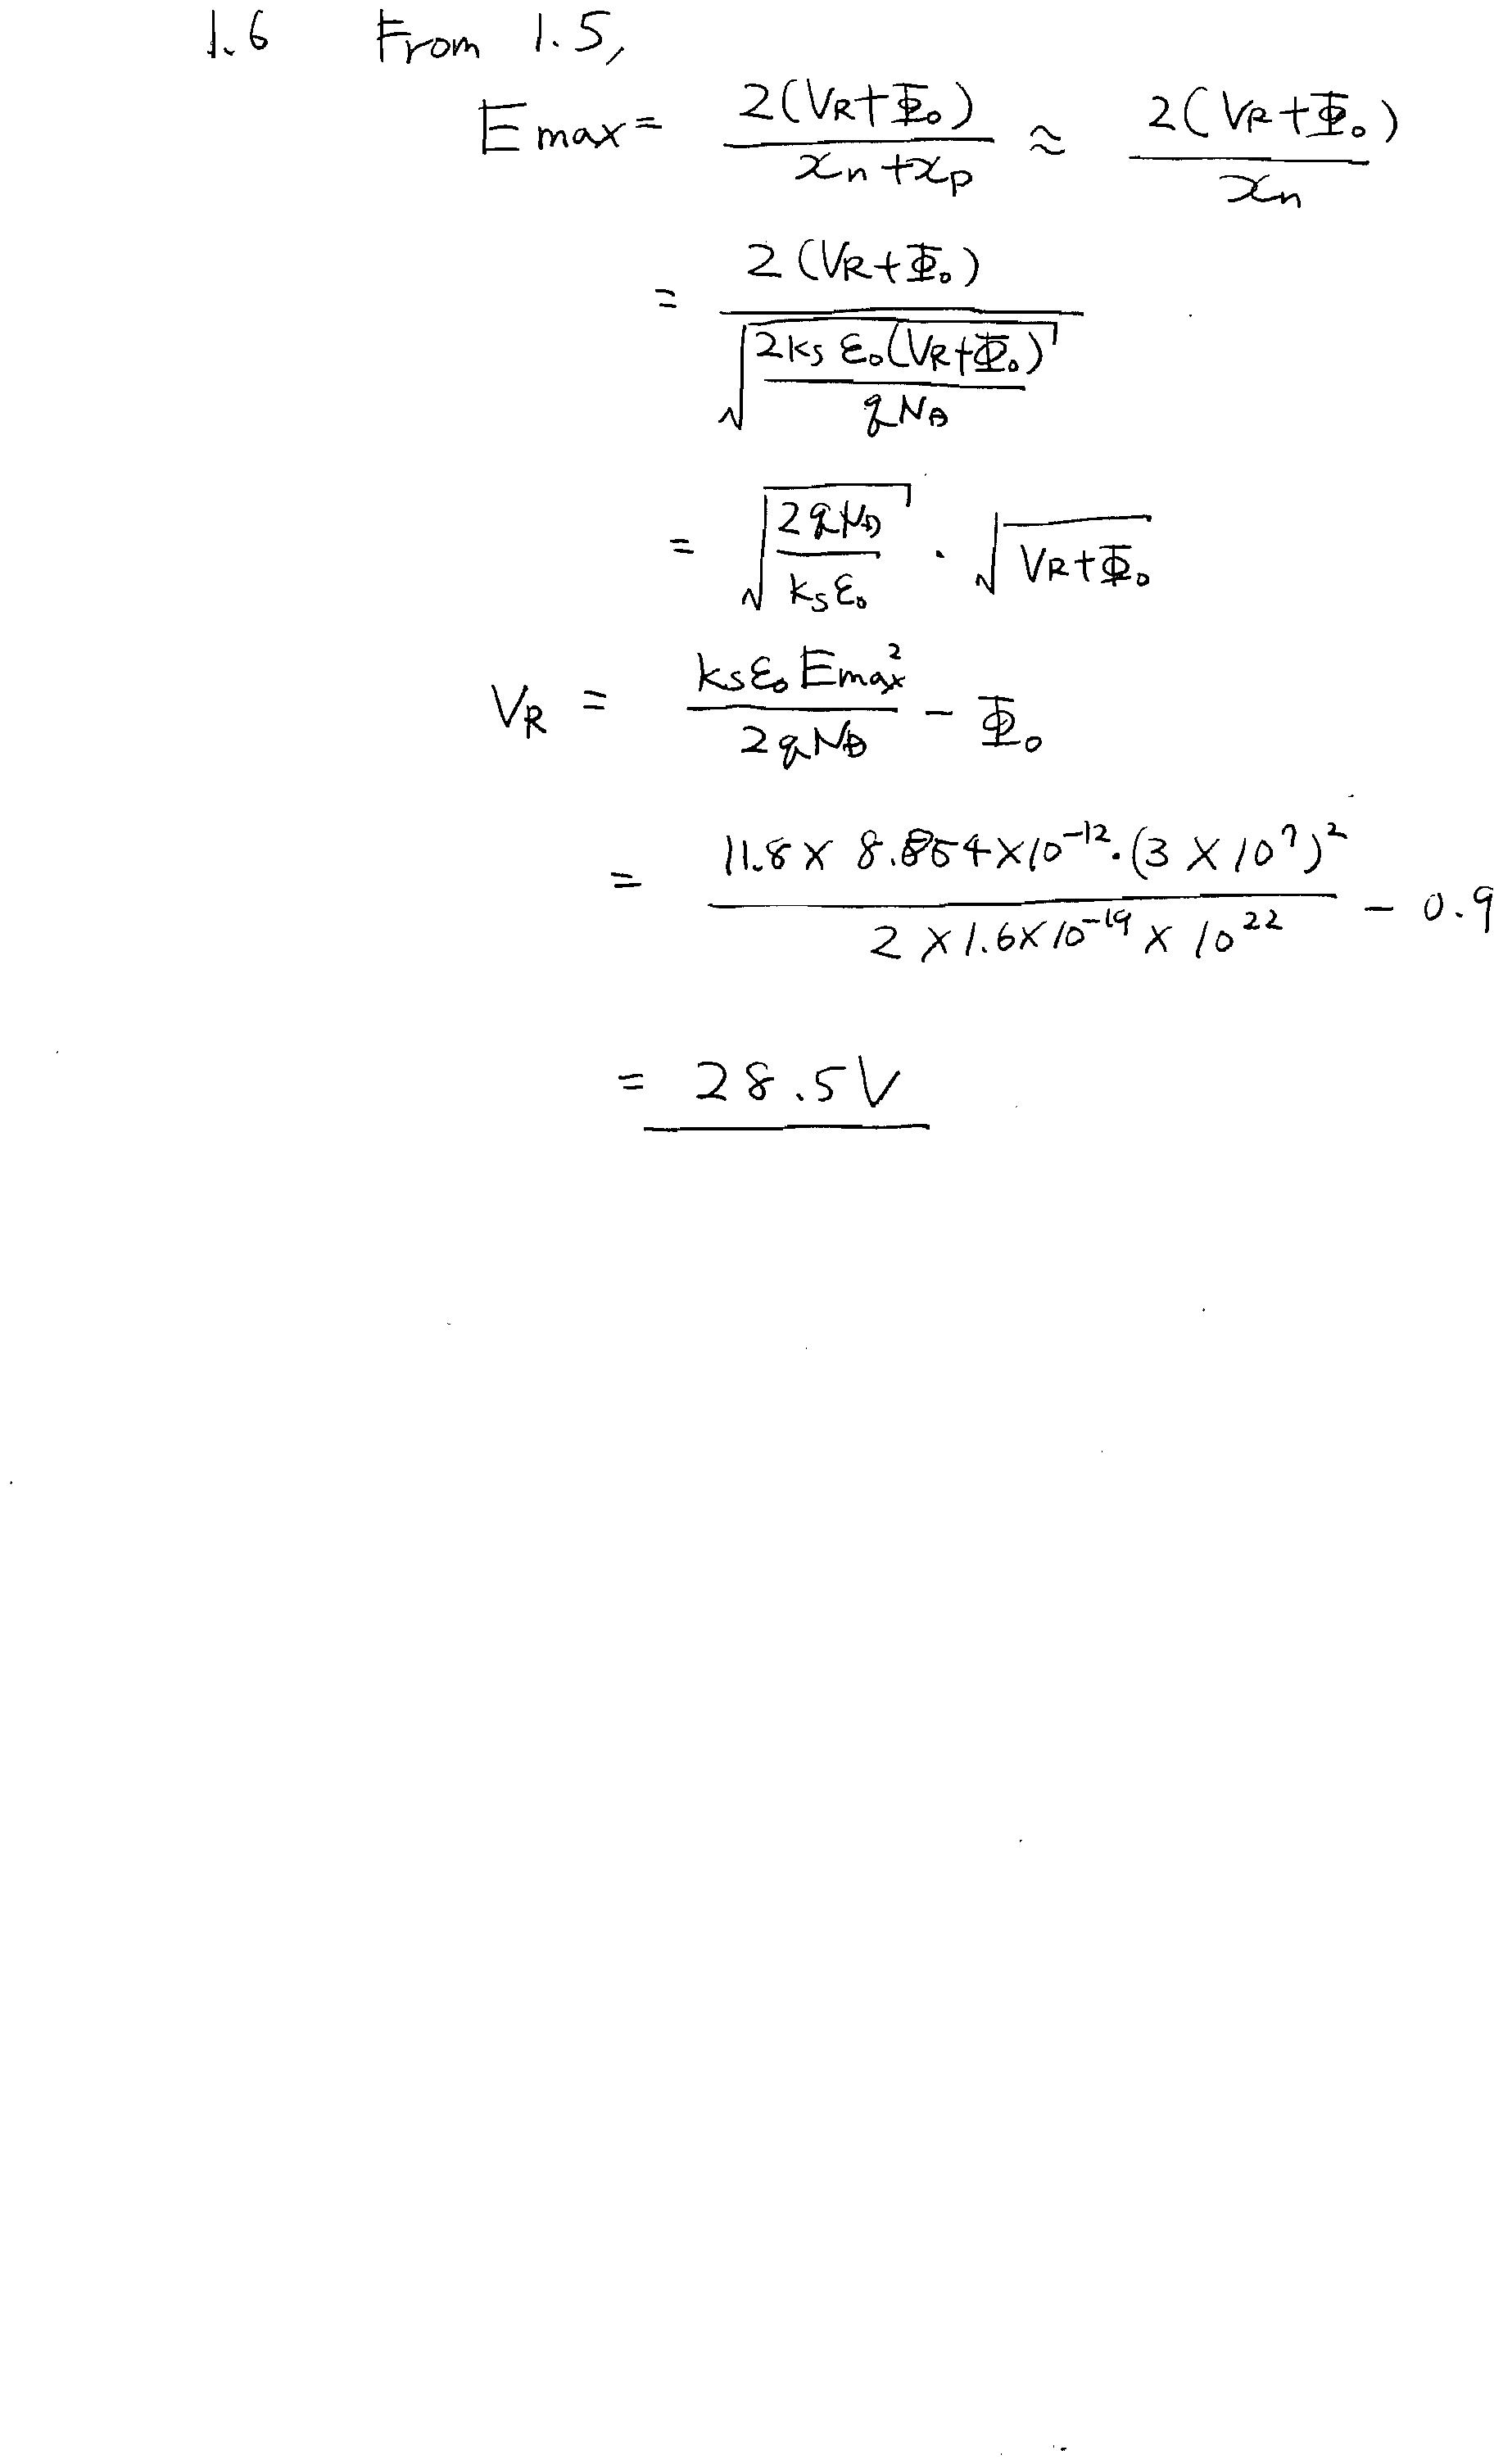 1.6 From 1.5,
Emax = 2(VR+Φ₀) / (xn+xp) ≈ 2(VR+Φ₀) / xn
= 2(VR+Φ₀) / √(2ks ε₀(VR+Φ₀) / qND)
= √(2qND / ksε₀) · √(VR+Φ₀)
VR = ksε₀Emax² / 2qND - Φ₀
= 11.8 × 8.854×10⁻¹²·(3 × 10⁷)² / 2 × 1.6×10⁻¹⁹ × 10²² - 0.9
= 28.5V